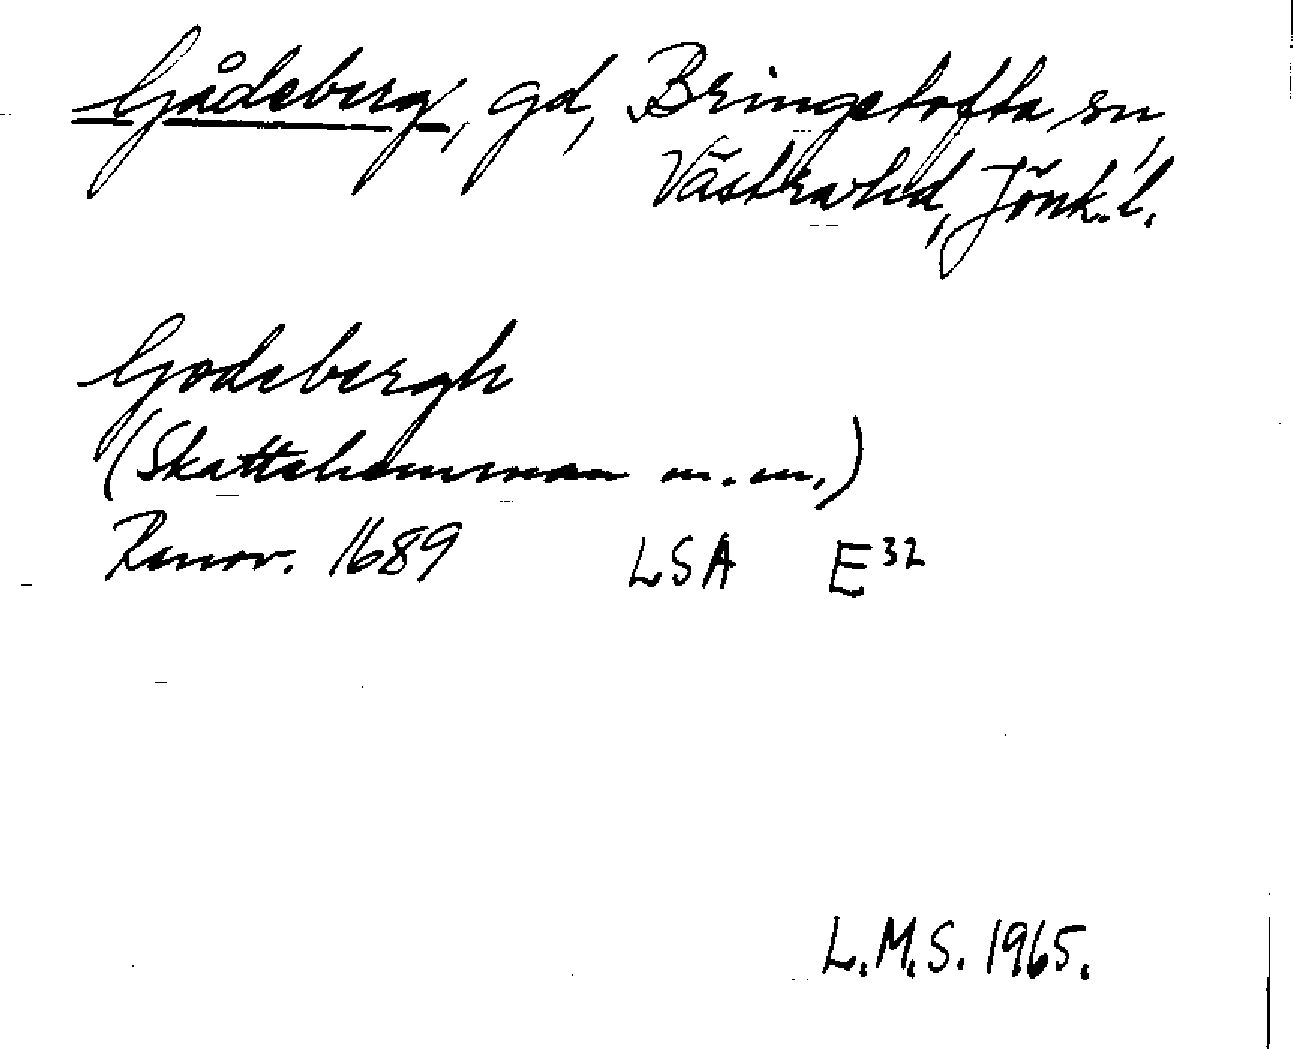 Gådeberg, gd, Bringetofta sn,
Västra hd, Jönk. l.
Godebergh
(Skattehemman m.m.)
Renov. 1689 LSA E32
L.M.S. 1965.